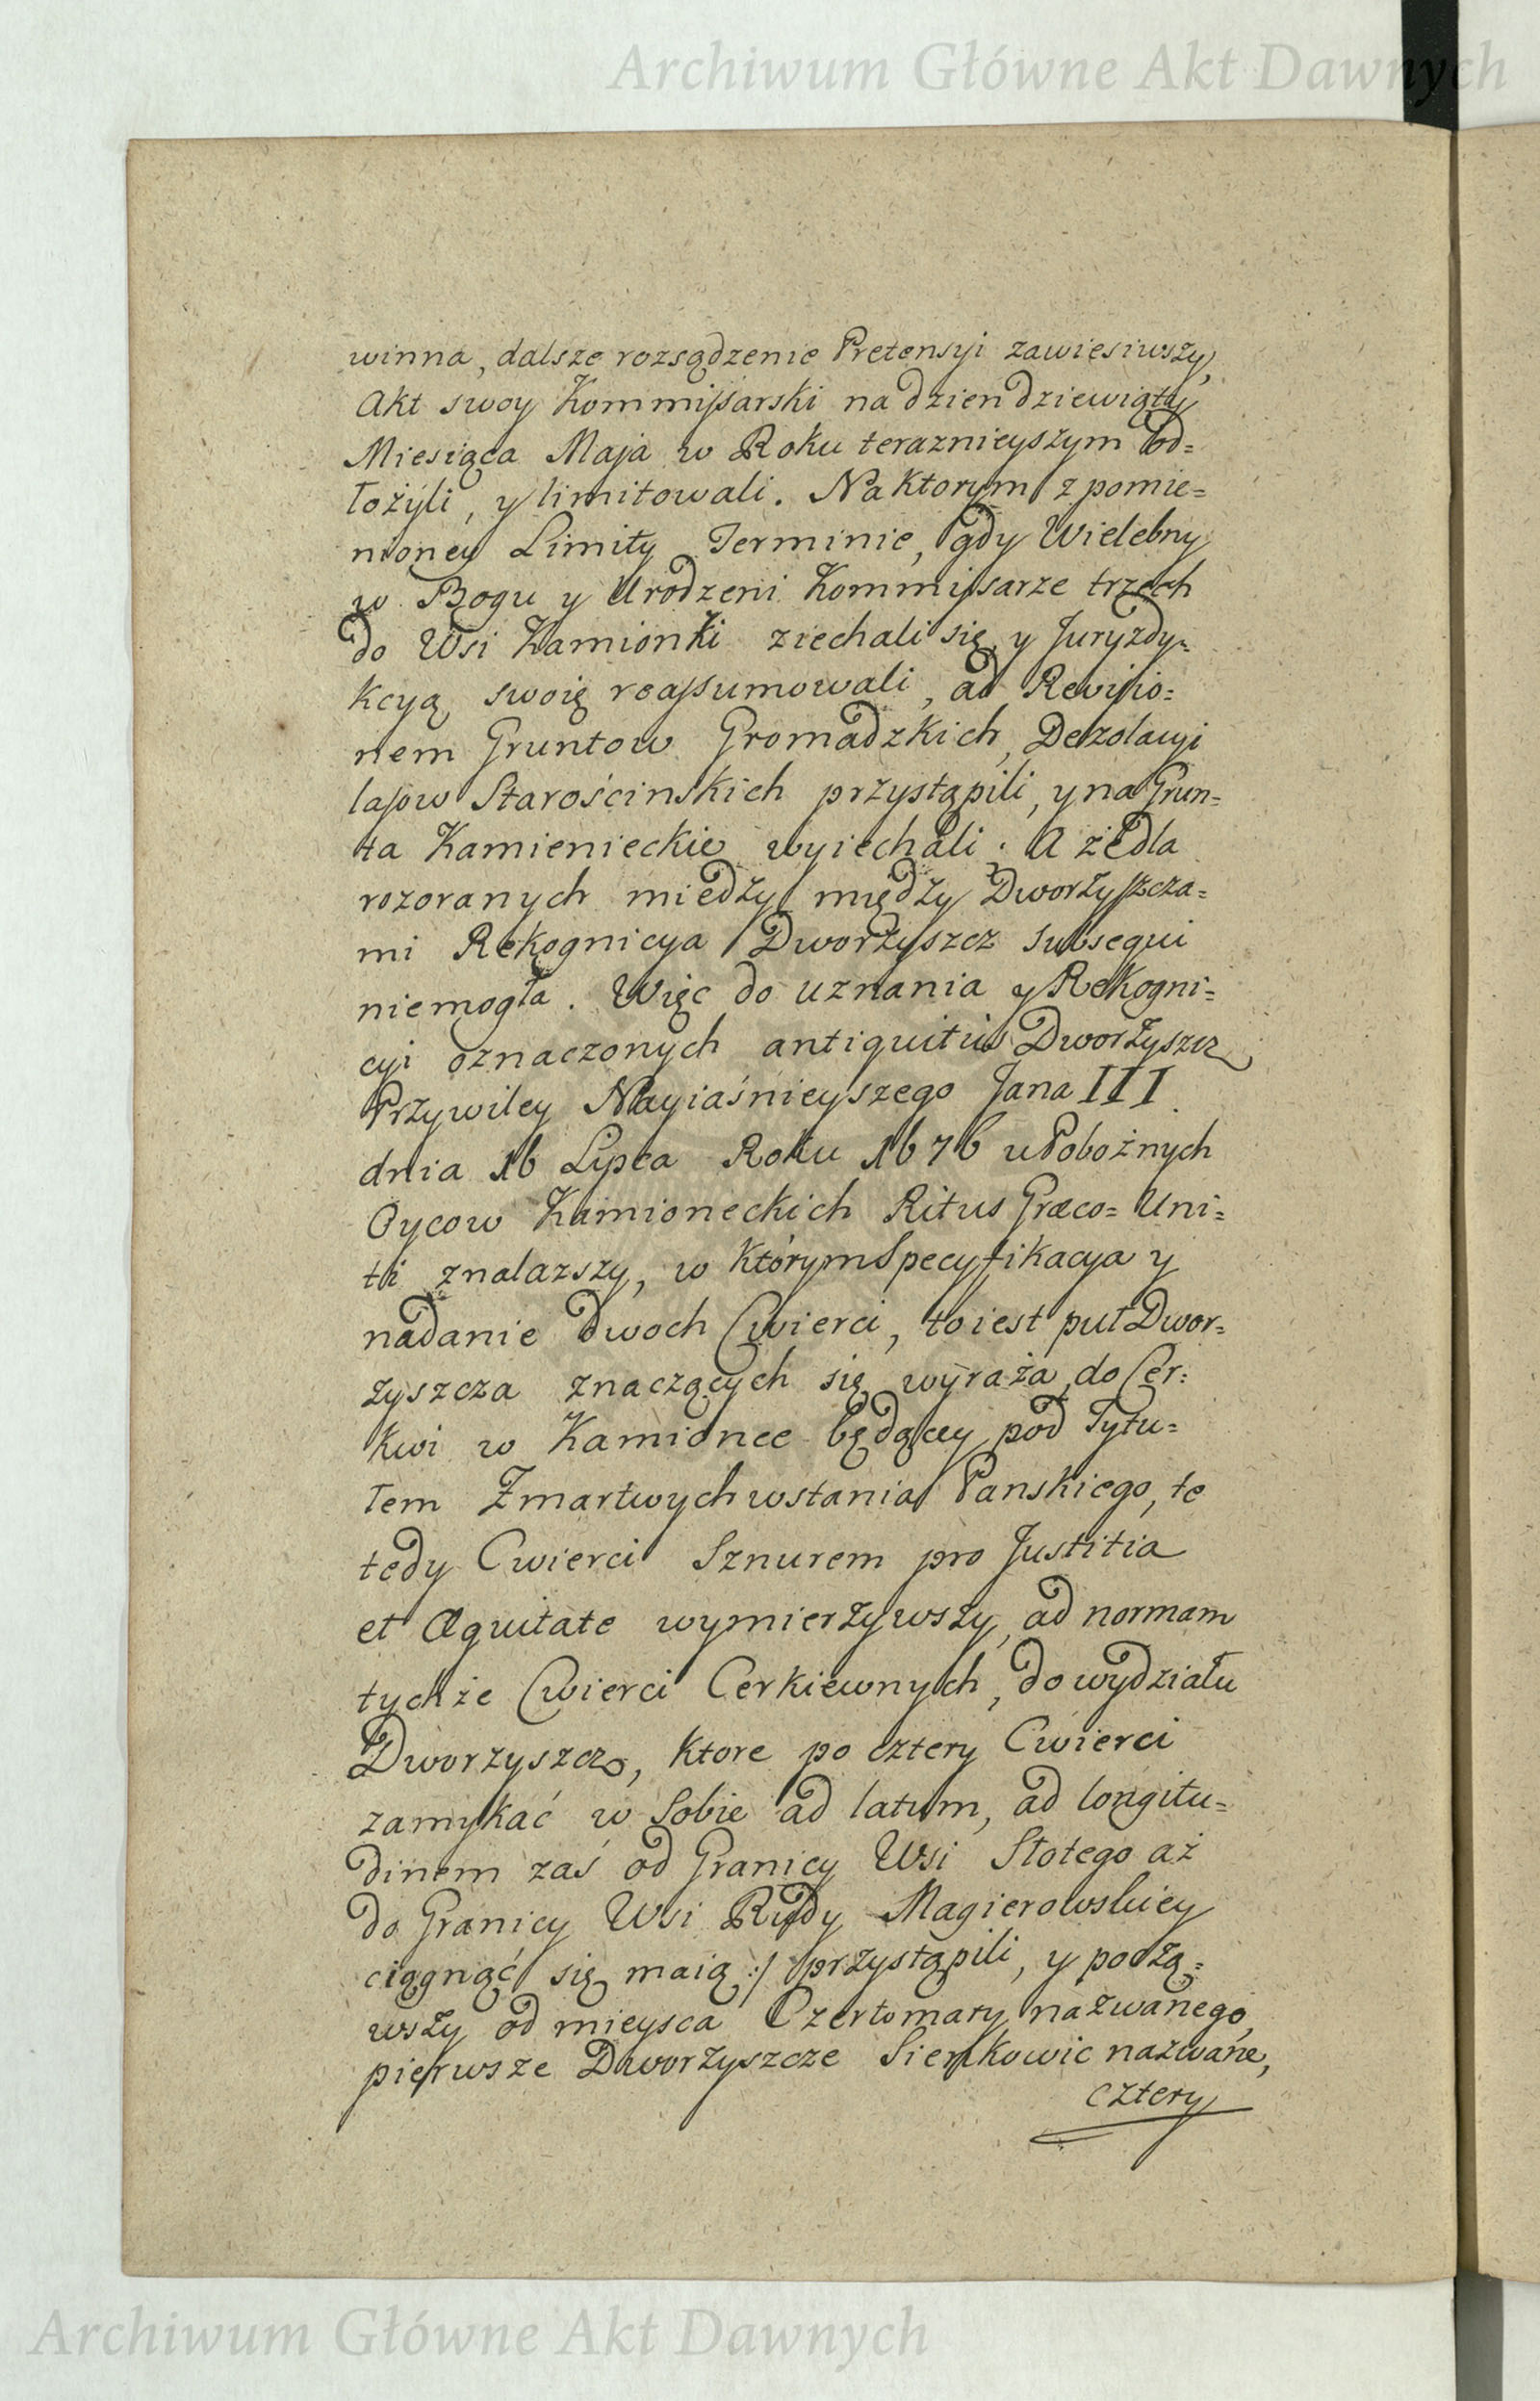 Archiwum Główne Akt Dawnych
winna, dalsze rozsądzenie Pretensyi zawiesiwszy,
Akt swoy Kommissarski na dzien dziewiąty
Miesiąca Maja w Roku teraznieyszym od=
łożyli, y limitowali. Na ktorym z pomie=
nioney Limity Terminie, gdy Wielebny
w Bogu y Urodzeni Kommissarze trzech
do Wsi Kamionki ziechali się, y Juryzdy=
kcyą swoię reassumowali, ad Revisio=
nem Gruntow Gromadzkich, Dezolacyi
lasow Starościnskich przystąpili, y na Grun=
ta Kamienieckie wyiechali. A że dla
rozoranych miedzy między Dworzyszcza=
mi Rekognicya Dworzyszcz subsequi
niemogła. Więc do uznania y Rekogni=
cyi oznaczonych antiquitus Dworzyszcz
Przywiley Nayiaśnieyszego Jana III.
dnia 16 Lipca Roku 1676 u Pobożnych
Oycow Kamioneckich Ritus Græco= Uni=
ti znalazszy, w którym Specyfikacya y
nadanie dwoch Cwierci, to iest puł Dwor=
zyszcza znaczących się wyraża, do Cer=
kwi w Kamionce będącey pod Tytu=
łem Zmartwychwstania Panskiego, te
tedy Cwierci Sznurem pro Justitia
et Æquitate wymierzywszy, ad normam
tychże Cwierci Cerkiewnych, do wydziału
Dworzyszcz, ktore po cztery Cwierci
zamykać w Sobie ad latum, ad longitu=
dinem zaś od Granicy Wsi Stotego aż
do Granicy Wsi Rudy Magierowskiey
ciągnąć się maią :/ przystąpili, y począ=
wszy od mieysca Czertomary nazwanego,
pierwsze Dworzyszcze Sienkowic nazwane,
cztery
Archiwum Główne Akt Dawnych